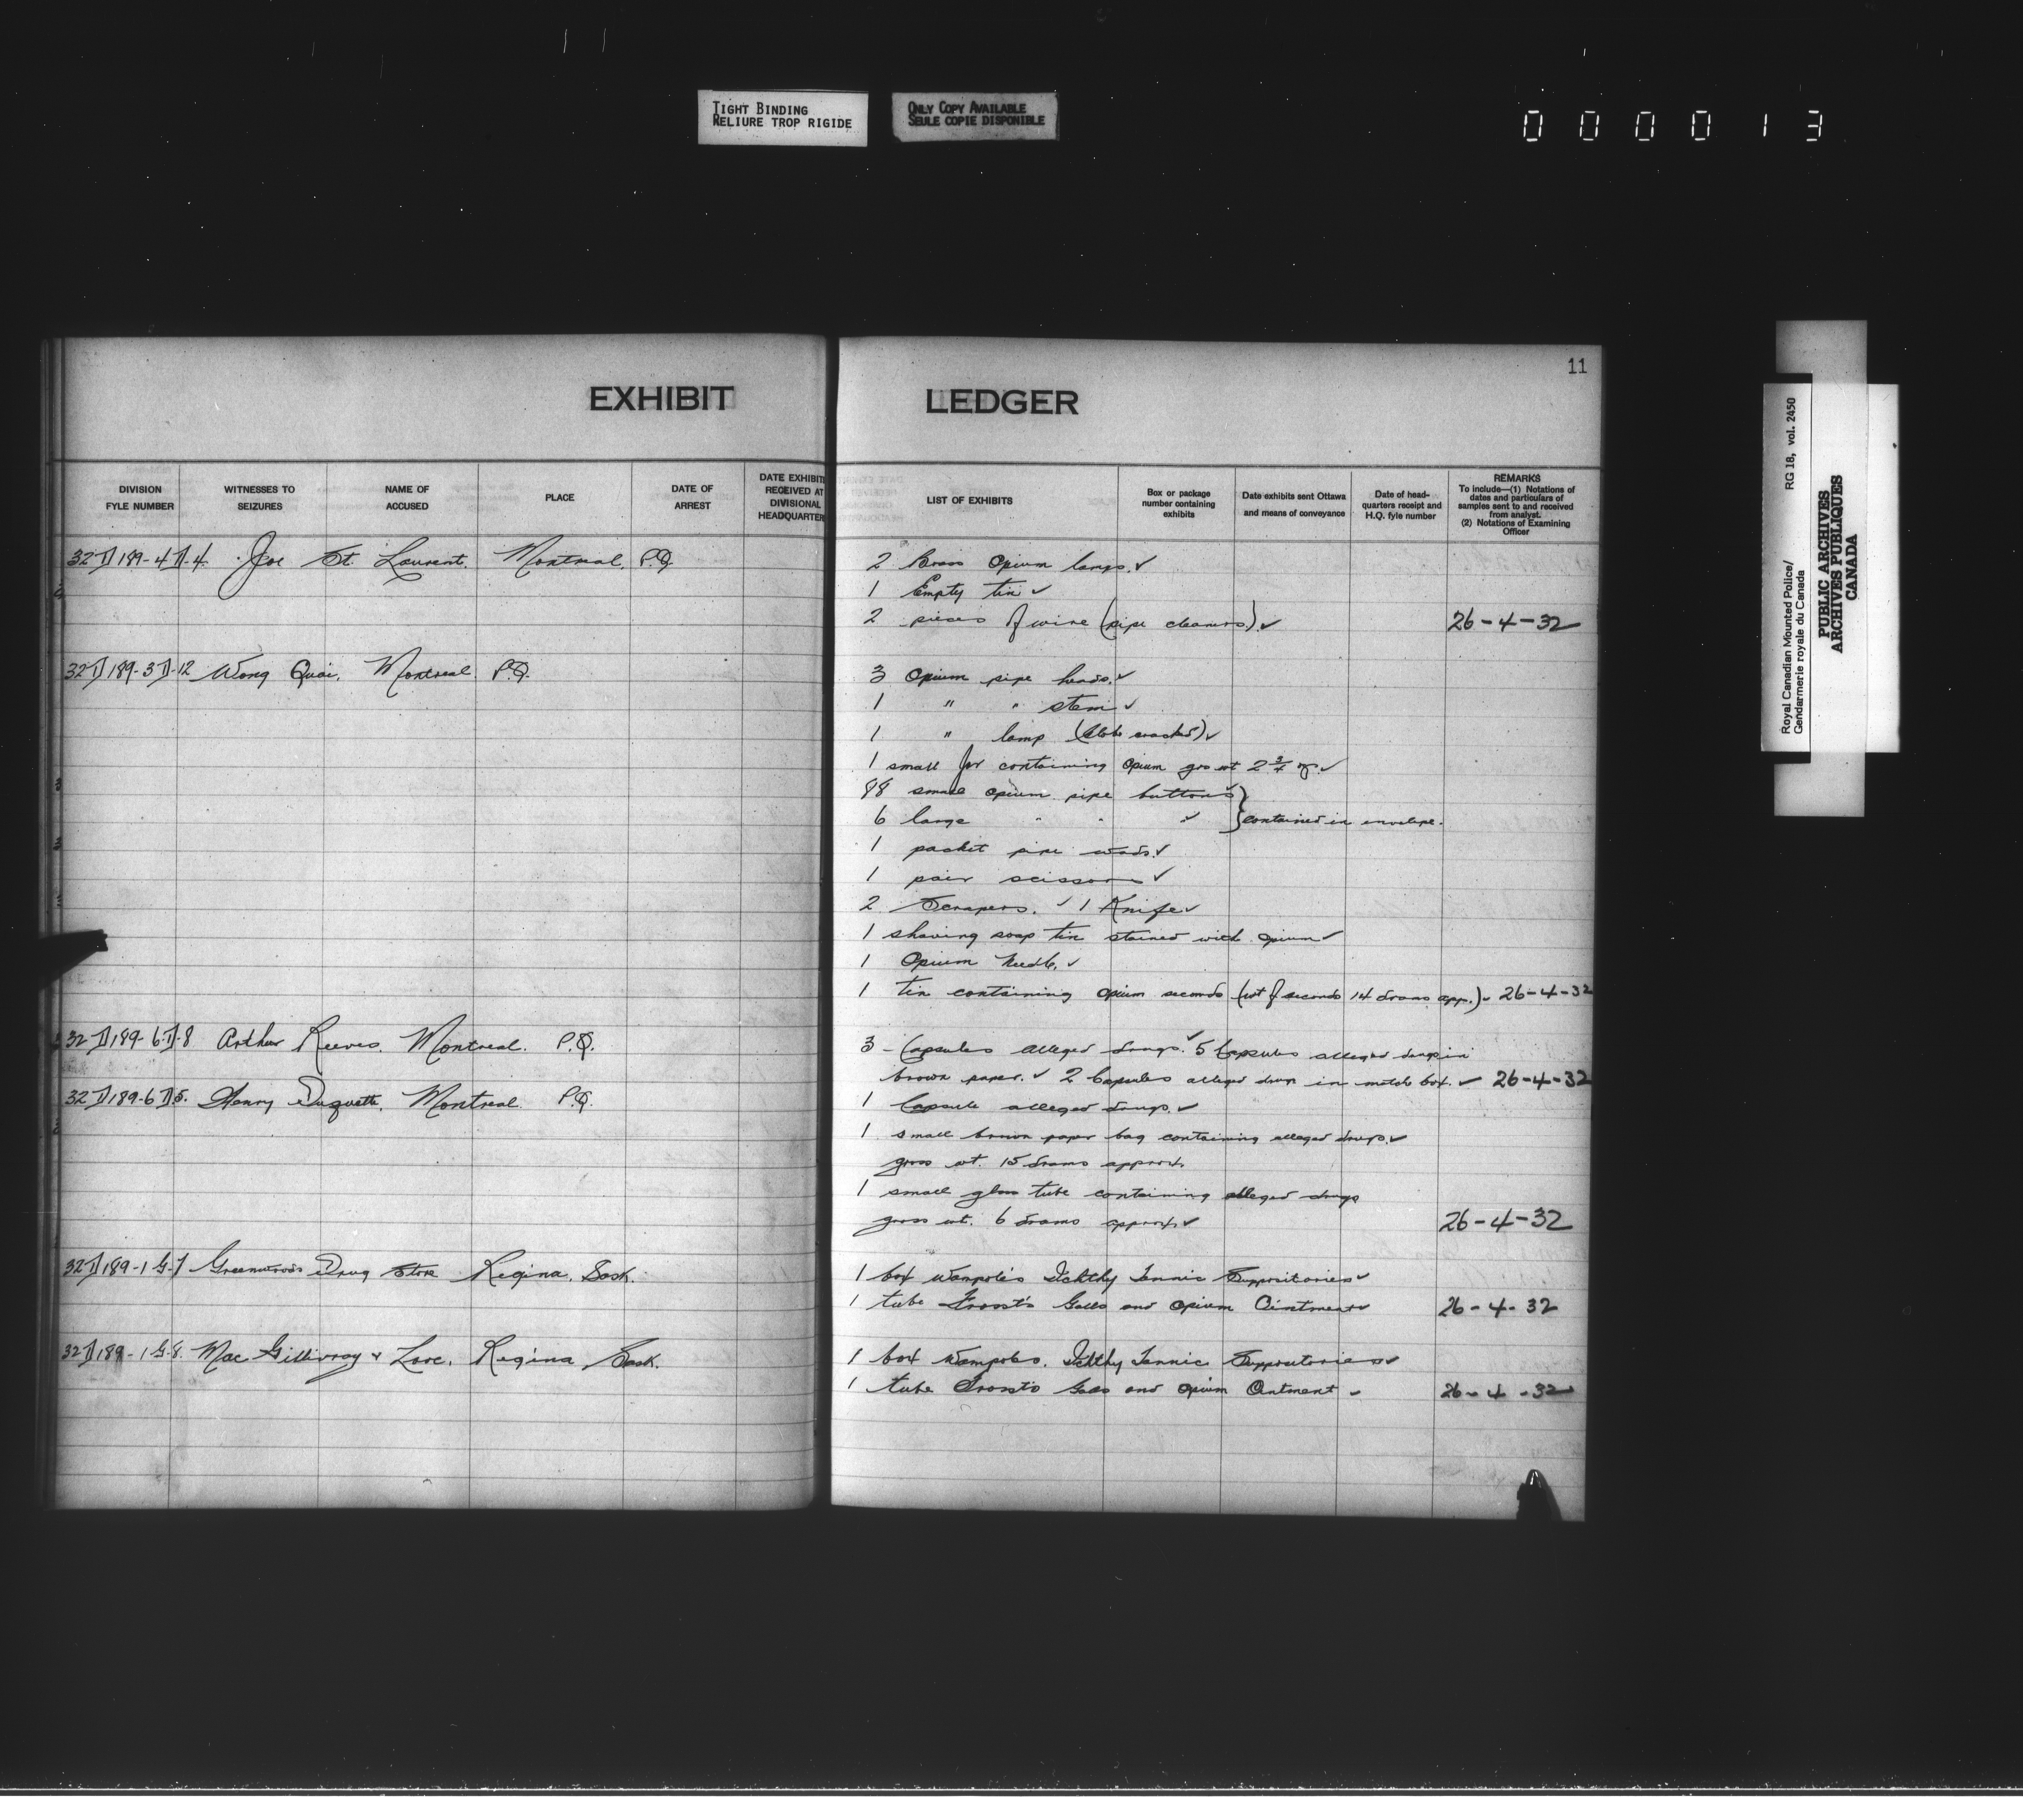 TIGHT BINDING
RELIURE TROP RIGIDE
ONLY COPY AVAILABLE
SEULE COPIE DISPONIBLE
000013
11
EXHIBIT LEDGER
DIVISION FYLE NUMBER
WITNESSES TO SEIZURES
NAME OF ACCUSED
PLACE
DATE OF ARREST
DATE EXHIBITS RECEIVED AT DIVISIONAL HEADQUARTERS
LIST OF EXHIBITS
Box or package number containing exhibits
Date exhibits sent Ottawa and means of conveyance
Date of head-quarters receipt and H.Q. fyle number
REMARKS
To include—(1) Notations of dates and particulars of samples sent to and received from analyst.
(2) Notations of Examining Officer
32 D 189-4 D-4. Joe St. Laurent. Montreal. P.Q. 2 Brass Opium lamps. ✓
1 Empty tin ✓
2 pieces of wire (pipe cleaners). ✓ 26-4-32
32 D 189-3 D-12 Wong Quai. Montreal P.Q. 3 Opium pipe heads. ✓
1 " " stem ✓
1 " lamp (Globe cracked) ✓
1 small jar containing opium gro wt 2 3/4 oz. ✓
88 small opium pipe buttons ✓
6 large " " " ✓ } contained in envelope.
1 packet pipe wads. ✓
1 pair scissors ✓
2 Scrapers. ✓ 1 Knife ✓
1 shaving soap tin stained with opium ✓
1 Opium Needle. ✓
1 tin containing opium seconds (wt of seconds 14 drams app.) ✓ 26-4-32
32 D 189-6 D-8 Arthur Reeves. Montreal. P.Q. 3 - Capsules alleged drugs. ✓ 5 Capsules alleged drugs in
brown paper. ✓ 2 Capsules alleged drugs in match box. ✓ 26-4-32
32 D 189-6 D 5. Henry Duquette. Montreal P.Q. 1 Capsule alleged drugs. ✓
1 small brown paper bag containing alleged drugs. ✓
gross wt. 15 drams approx.
1 small glass tube containing alleged drugs
gross wt. 6 drams approx. ✓ 26-4-32
32 D 189-1 G-7 Greenwoods Drug Store Regina. Sask. 1 box Wampole's Ichthy Tannic Suppositories ✓
1 tube Frosst's Galls and Opium Ointment ✓ 26-4-32
32 D 189-1 G-8. Mac Gillivray & Love. Regina Sask. 1 box Wampoles. Ichthy Tannic Suppositories ✓
1 tube Frossts Galls and Opium Ointment ✓ 26-4-32
Royal Canadian Mounted Police/
Gendarmerie royale du Canada
RG 18, vol. 2450
PUBLIC ARCHIVES
ARCHIVES PUBLIQUES
CANADA